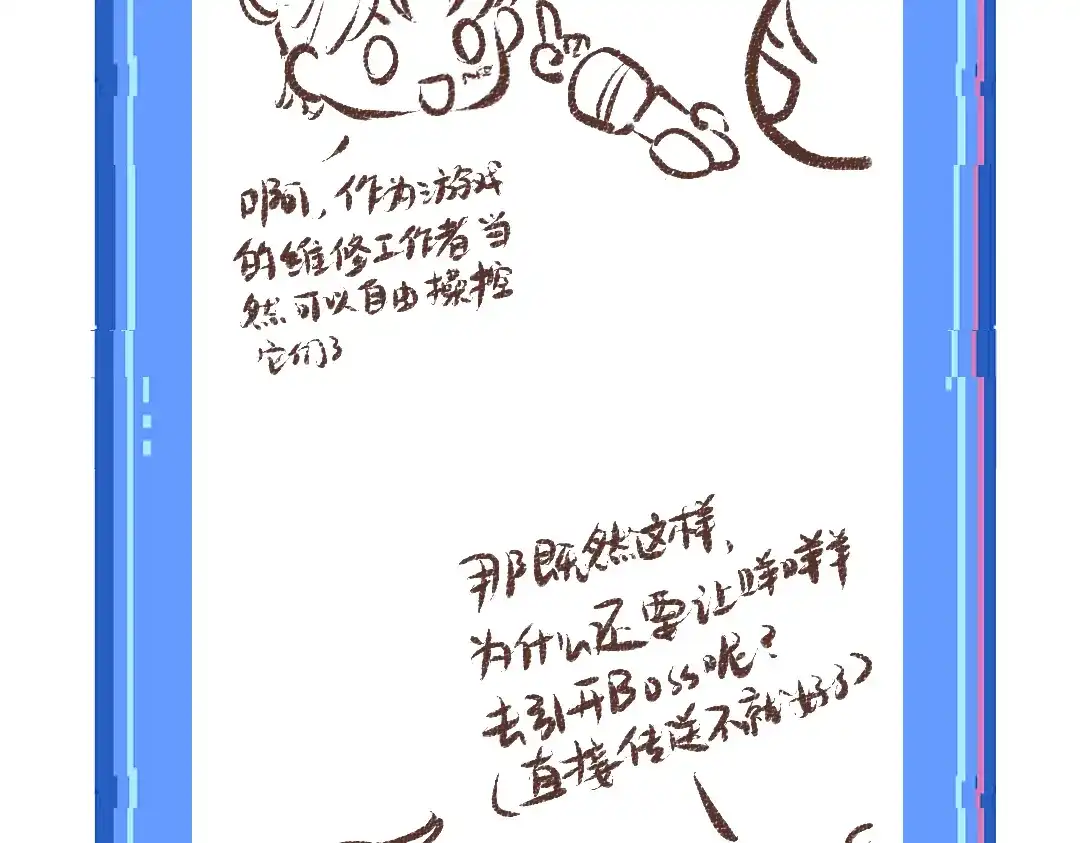 啊，作为游戏
的维修工作者当
然可以自由操控
它们了
那既然这样，
为什么还要让咩咩羊
去引开Boss呢？
（直接传送不就好了）